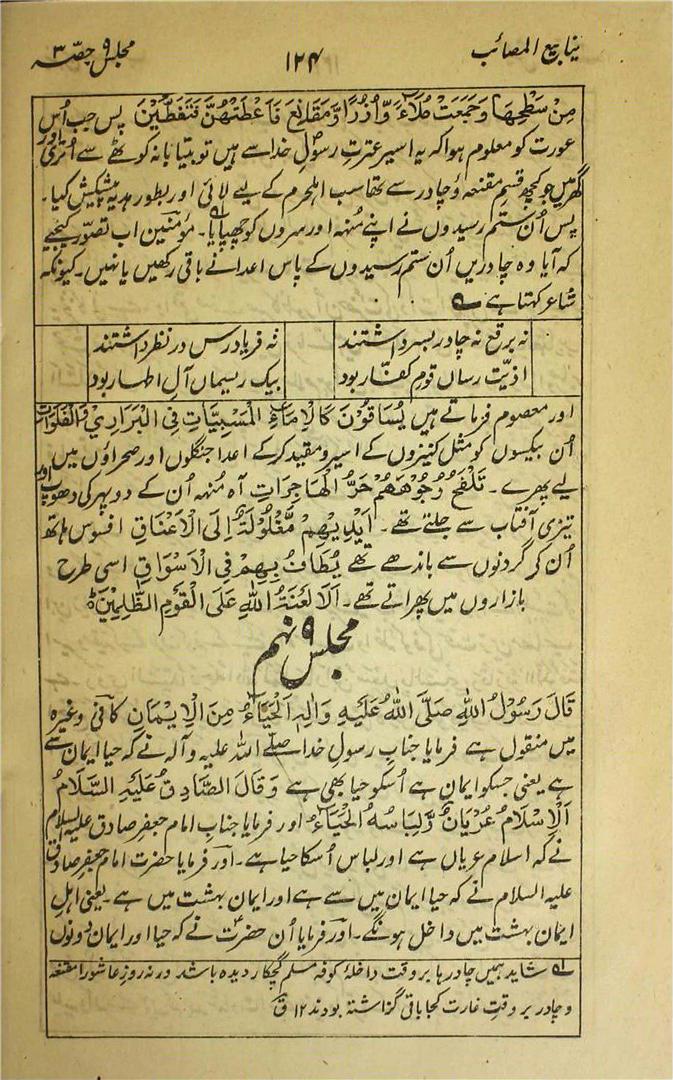 ینابیع المصائب
۱۲۴
مجلس ۹ حصّہ ۳
مِنْ سَطْحِهَا وَجَمَعَتْ مُلَاءً وَّاُزُرًا وَّمَقَانِعَ فَاَعْطَتْهُنَّ فَتَغَطَّيْنَ پس جب اُس
عورت کو معلوم ہوا کہ یہ اسیر عترتِ رسولِ خدا سے ہیں تو بیتابانہ کوٹھے سے اُتری اور
گھر میں جو کچھ قسم مقنعہ و چادر سے تھا سب اہلحرم کے لیے لائی اور بطور ہدیہ پیشکش کیا۔
پس اُن ستم رسیدوں نے اپنے مُنہہ اور سروں کو چھپایا۔ مؤمنین اب تصوّر کیجیے
کہ آیا وہ چادریں اُن ستم رسیدوں کے پاس اعدا نے باقی رکھیں یا نہیں۔ کیونکہ
شاعر کہتا ہے
نہ برقع نہ چادر بسر داشتند
نہ فریادرس در نظر داشتند
اذیّت رساں قومِ کفّار بود
بیک ریسماں آلِ اطہار بود
اور معصوم فرماتے ہیں يُسَاقُوْنَ كَالْاِمَاءِ الْمَسْبِيَّاتِ فِي الْبَرَارِيْ وَالْفَلَوَاتِ
اُن بیکسوں کو مثل کنیزوں کے اسیر و مقید کر کے اعدا جنگلوں اور صحراؤں میں
لیے پھرے۔ تَلْفَحُ وُجُوْهَهُمْ حَرُّ الْهَاجِرَاتِ آہ مُنہہ اُن کے دوپہر کی دھوپ اور
تیزی آفتاب سے جلتے تھے۔ اَيْدِيْهِمْ مَّغْلُوْلَةٌ اِلَى الْاَعْنَاقِ افسوس ہاتھ
اُن کے گردنوں سے باندھے تھے يُطَافُ بِهِمْ فِي الْاَسْوَاقِ اسی طرح
بازاروں میں پھراتے تھے۔ اَلَا لَعْنَةُ اللهِ عَلَى الْقَوْمِ الظّٰلِمِيْنَ
مجلس ۹ نہم
قَالَ رَسُوْلُ اللهِ صَلَّى اللهُ عَلَيْهِ وَاٰلِهٖ اَلْحَيَاءُ مِنَ الْاِيْمَانِ کافی وغیرہ
میں منقول ہے فرمایا جناب رسولِ خدا صلے اللہ علیہ وآلہ نے کہ حیا ایمان سے
ہے یعنی جسکو ایمان ہے اُسکو حیا بھی ہے وَقَالَ الصَّادِقُ عَلَيْهِ السَّلَامُ
اَلْاِسْلَامُ عُرْيَانٌ وَّلِبَاسُهُ الْحَيَاءُ اور فرمایا جناب امام جعفر صادق علیہ السلام
نے کہ اسلام عریاں ہے اور لباس اُسکا حیا ہے۔ اور فرمایا حضرت امام جعفر صادق
علیہ السلام نے کہ حیا ایمان میں سے ہے اور ایمان بہشت میں ہے۔ یعنی اہلِ
ایمان بہشت میں داخل ہونگے۔ اور فرمایا اُن حضرتؑ نے کہ حیا اور ایمان دونوں
لہ شاید ہمیں چادرہا بر وقت داخلۂ کوفہ مسلم گچکار دیدہ باشد ورنہ روزِ عاشورا مقنعہ
و چادر بر وقتِ غارت کجا باقی گزاشتہ بودند ۱۲ ق